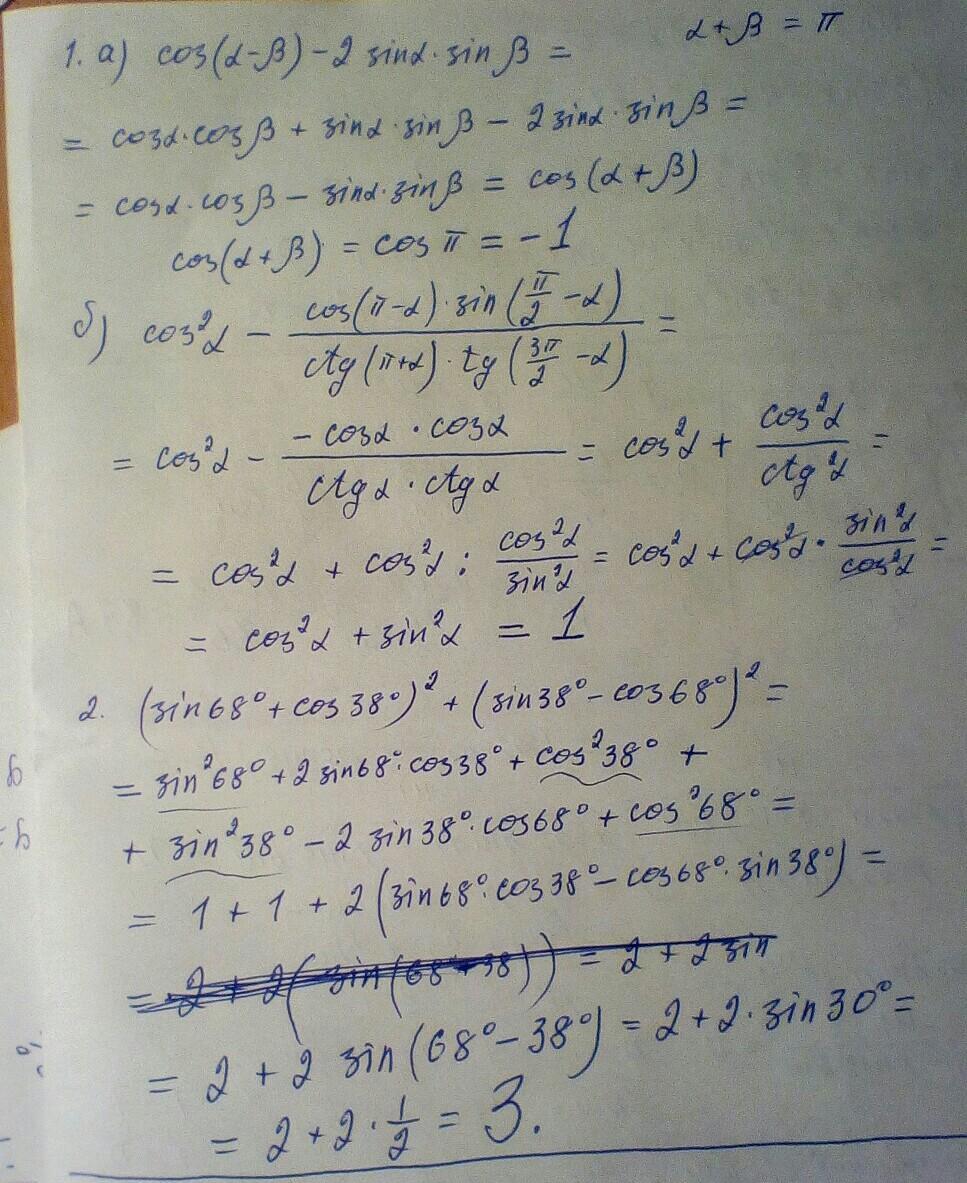 1. а) cos(α-β) - 2 sinα · sin β =   α + β = π
= cosα · cos β + sinα · sin β - 2 sinα · sin β =
= cosα · cos β - sinα · sin β = cos (α + β)
cos(α + β) = cos π = -1
б) cos²α - (cos(π-α) · sin(π/2 - α))/(ctg(π+α) · tg(3π/2 - α)) =
= cos²α - (-cosα · cosα)/(ctgα · ctgα) = cos²α + cos²α/ctg²α =
= cos²α + cos²α : cos²α/sin²α = cos²α + cos²α · sin²α/cos²α =
= cos²α + sin²α = 1
2. (sin68° + cos38°)² + (sin38° - cos68°)² =
= sin²68° + 2 sin68° · cos38° + cos²38° +
+ sin²38° - 2 sin38° · cos68° + cos²68° =
= 1 + 1 + 2(sin68° · cos38° - cos68° · sin38°) =
= 2 + 2(sin(68-38)) = 2 + 2 sin
= 2 + 2 sin(68° - 38°) = 2 + 2 · sin30° =
= 2 + 2 · 1/2 = 3.